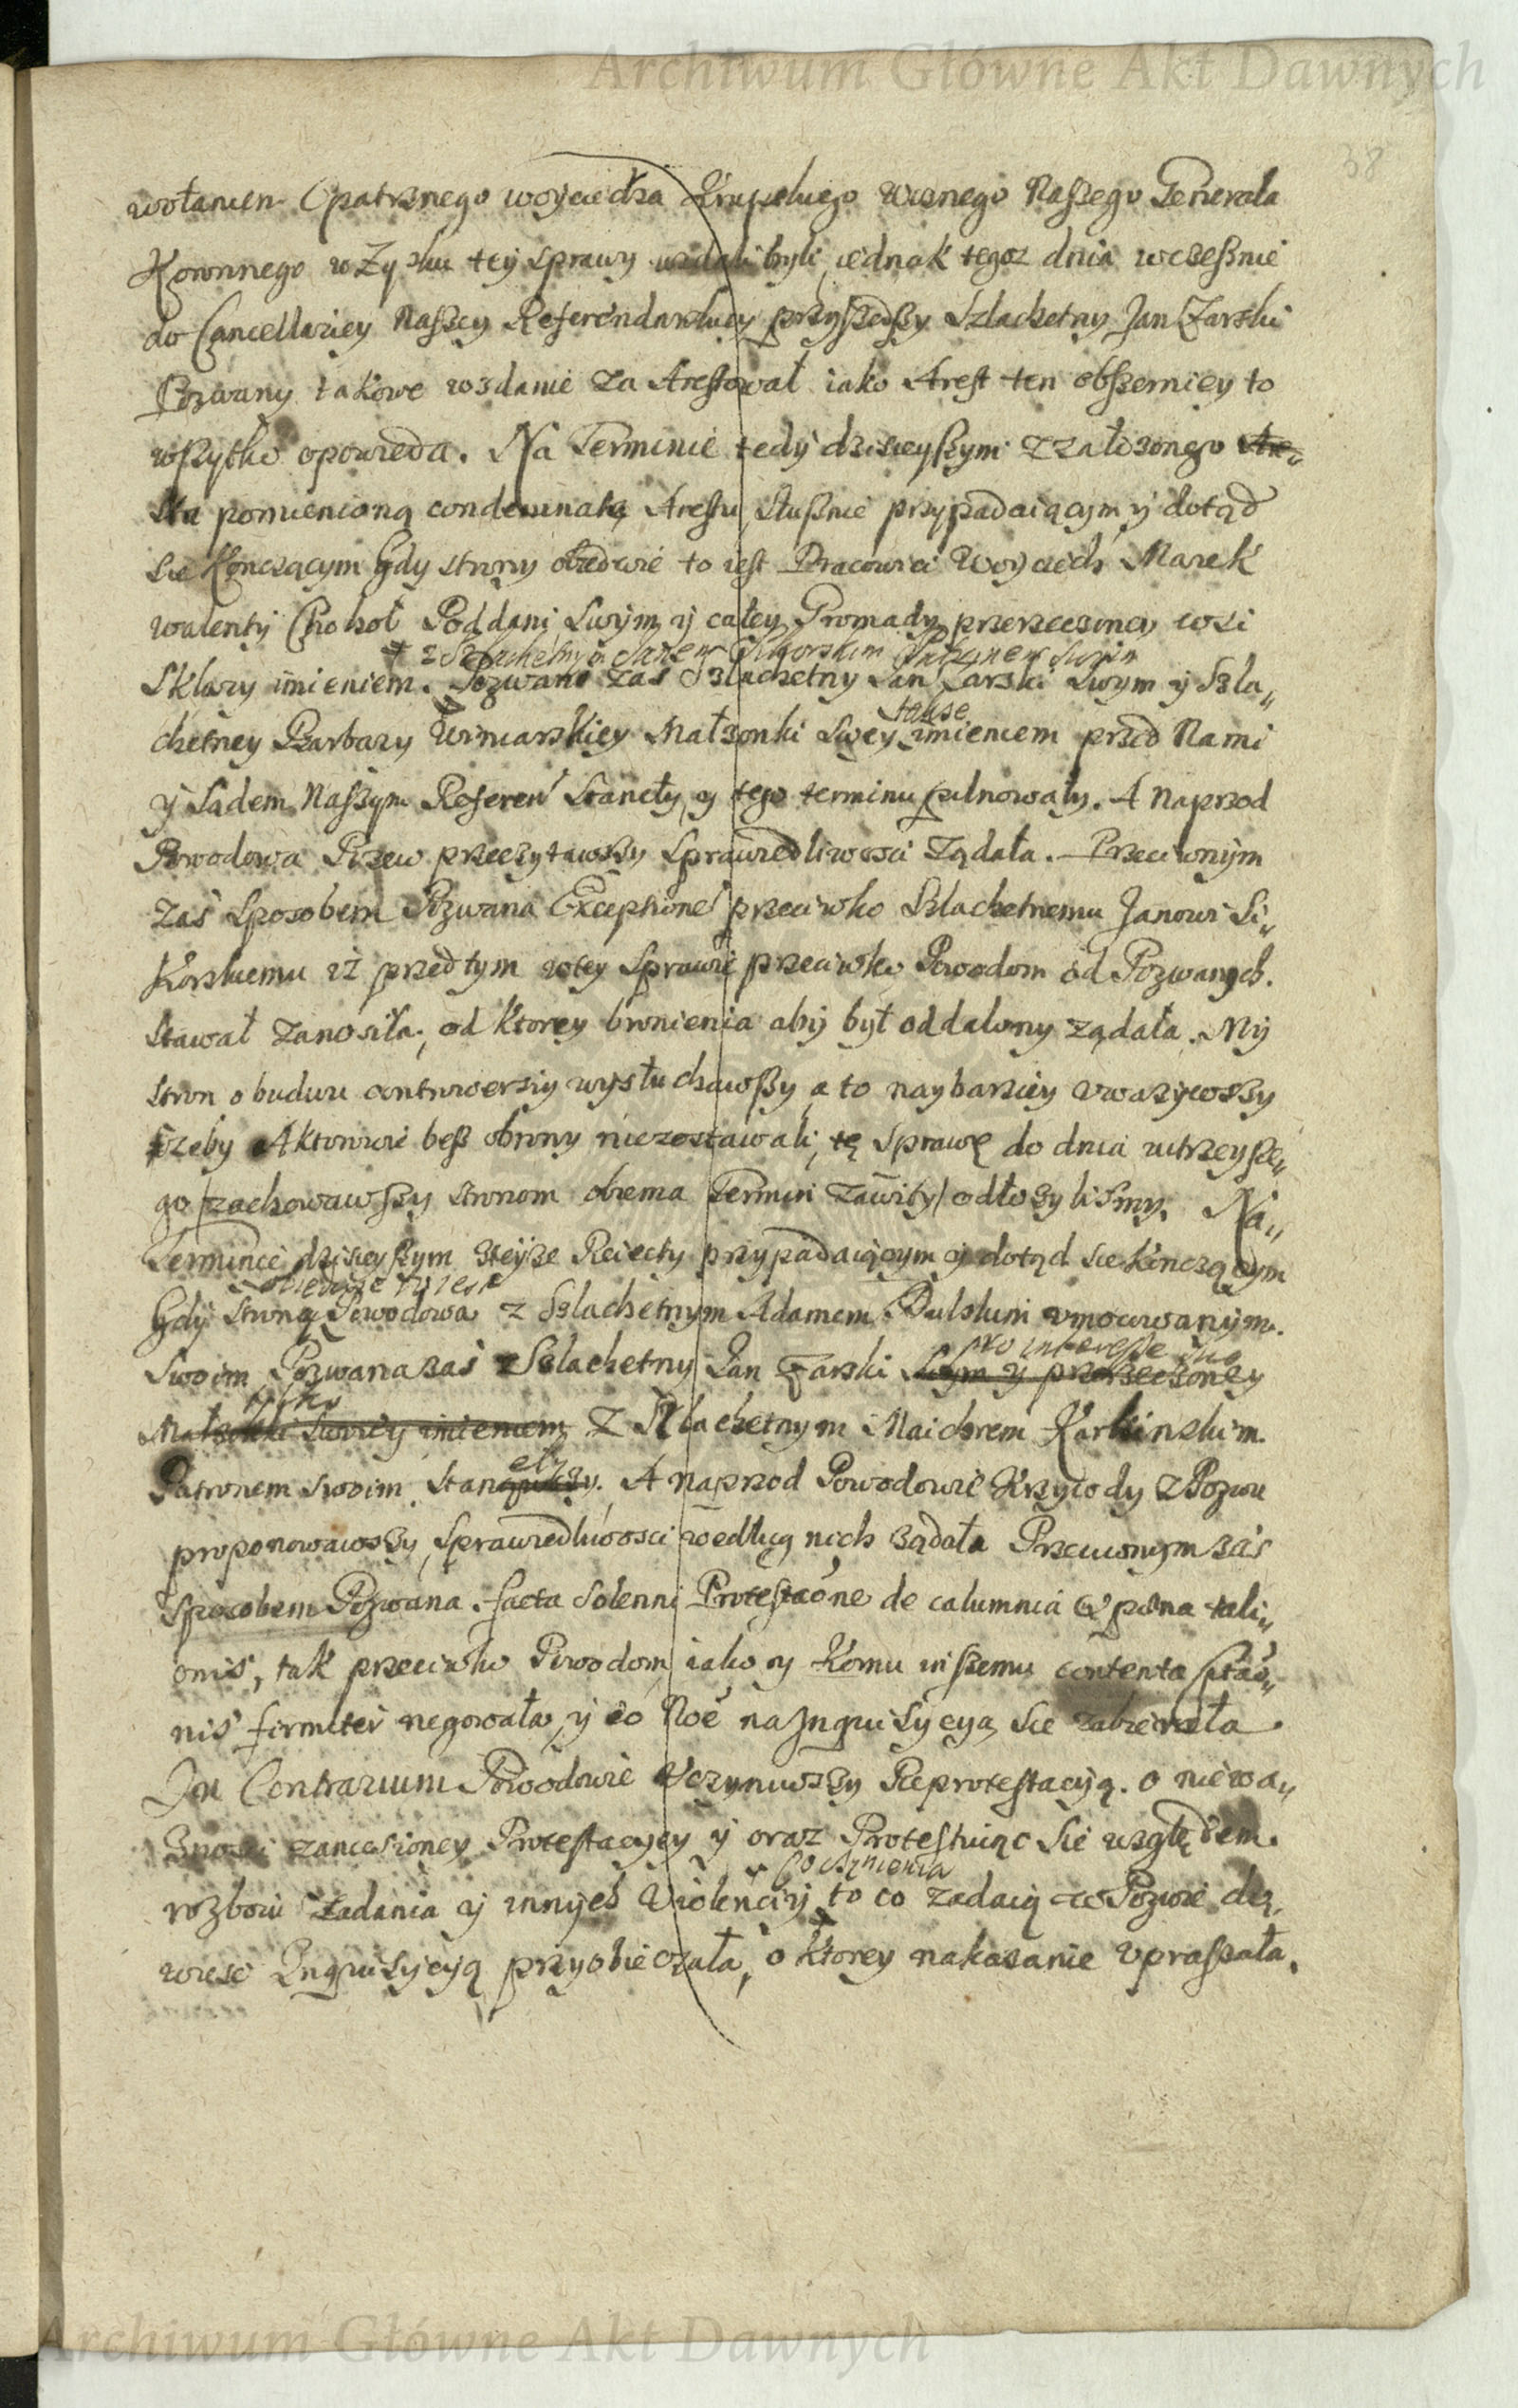 Archiwum Główne Akt Dawnych
38
wołaniem Opatrznego woyciecha Krupskiego woznego Naszego Generała
Koronnego w Zysku tey sprawy wzdali byli, iednak tegoz dnia wczesznie
do Cancellariey Naszey Referendarskiey przyszedszy Szlachetny Jan Żarski
Pozwany takowe wzdanie za Arestował iako Arest ten obszerniey to
wszytko opowieda. Na Terminie tedy dzisieyszym z załozonego Are„
Na pomienioną condemnatę Arestu, słusznie przypadaiącym y dotąd
sie Konczącym Gdy strony obiedwie to iest Pracowici Woyciech Marek
walenty Chohoł Poddani swym y całey Gromady przerzeczoney wsi
+ z Szlachetnym Janem Sikorskim Patronem swoim
Sklary imieniem. Pozwana zaś Szlachetny Jan Żarski swym y Szla„
takze
chetney Barbary Winiarskiey Małzonki swey imieniem przed Nami
y Sądem Naszym Referen Stanęły, y tego terminu pilnowały. A Naprzod
Powodowa Pozew przeczytawszy Sprawiedliwosci Ządała. Przeciwnym
zaś Sposobem Pozwana Exceptione przeciwko Szlachetnemu Janowi Si„
Korskiemu iż przedtym w tey Sprawie przeciwko Powodom od Pozwanych
stawał zanosiła, od Ktorey bronienia aby był oddalony ządała. My
stron obudwu controwersiy wysłuchawszy a to naybarziey vwazywszy
zeby Aktorowie besz obrony niezostawali, tę Sprawę do dnia iutrzeysze„
go /zachowawszy stronom obiema Termin zawity/ odłozylismy. Na„
Terminie dzisieyszym zteyze Reiecty przypadaiącym y dotąd sie konczącym
obiedwie to iest
Gdy Strony Powodowa z Szlachetnym Adamem Dulskim vmocowanym
pro interesse suo
Swoim Pozwana zaś Szlachetny Jan Żarski Swym y przerzeczoney
tylko
Małzonki Swoiey imieniem Z Szlachetnym Maichrem Karlinskim
ely
Patronem swoim, Stan. A naprzod Powodowie Krzywdy z Pozwu
proponowawszy, Sprawiedliwosci według nich ządała Przeciwnym zaś
Sposobem Pozwana. facta Solenni Protestaone de calumnia & pœna tali„
onis, tak przeciwko Powodom, iako y Komu inszemu contenta Citaó„
nis firmiter negowała, y eo Noe na Jnquisycyą sie zabierała
In Contrarium Powodowie Vczyniwszy Reprotestacyą. o niewa„
znosci zaniesioney Protestacyey y oraz Protestuiąc sie względem
Poczynienia
rozboiu zadania y innych Violenciy to co zadaią w Pozwie do„
wiesc Inquisycyą przyobieczała, o Ktorey nakazanie vpraszała.
Archiwum Główne Akt Dawnych